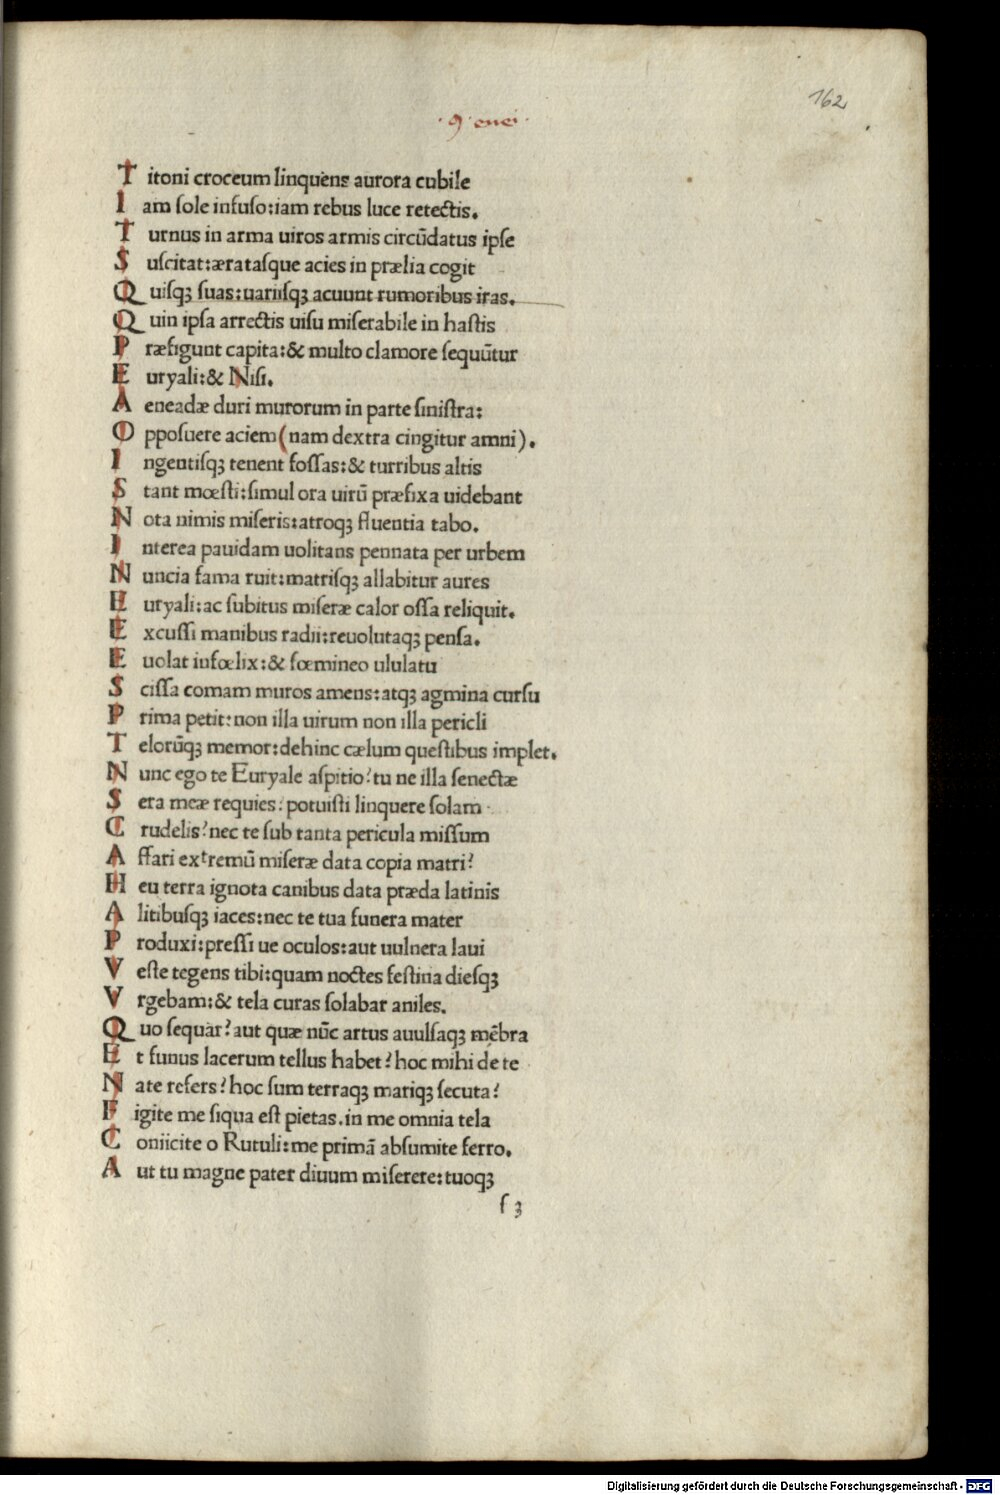 162
· 9 · enei ·
Titoni croceum linquens aurora cubile
Iam ſole infuſo:iam rebus luce retectis.
Turnus in arma uiros armis circūdatus ipſe
Suſcitat:ærataſque acies in prælia cogit
Quiſqꝫ ſuas:uariiſqꝫ acuunt rumoribus iras.
Quin ipſa arrectis uiſu miſerabile in haſtis
Præfigunt capita:& multo clamore ſequūtur
Euryali:& Niſi.
Aeneadæ duri murorum in parte ſiniſtra:
Oppoſuere aciem(nam dextra cingitur amni).
Ingentiſqꝫ tenent foſſas:& turribus altis
Stant mœſti:ſimul ora uirū præfixa uidebant
Nota nimis miſeris:atroqꝫ fluentia tabo.
Interea pauidam uolitans pennata per urbem
Nuncia fama ruit:matriſqꝫ allabitur aures
Euryali:ac ſubitus miſeræ calor oſſa reliquit.
Excuſſi manibus radii:reuolutaqꝫ penſa.
Euolat infœlix:& fœmineo ululatu
Sciſſa comam muros amens:atqꝫ agmina curſu
Prima petit:non illa uirum non illa pericli
Telorūqꝫ memor:dehinc cælum queſtibus implet.
Nunc ego te Euryale aſpitio?tu ne illa ſenectæ
Sera meæ requies?potuiſti linquere ſolam
Crudelis?nec te ſub tanta pericula miſſum
Affari extremū miſeræ data copia matri?
Heu terra ignota canibus data præda latinis
Alitibuſqꝫ iaces:nec te tua funera mater
Produxi:preſſi ue oculos:aut uulnera laui
Veſte tegens tibi:quam noctes feſtina dieſqꝫ
Vrgebam:& tela curas ſolabar aniles.
Quo ſequar?aut quæ nūc artus auulſaqꝫ mēbra
Et funus lacerum tellus habet?hoc mihi de te
Nate refers?hoc ſum terraqꝫ mariqꝫ ſecuta?
Figite me ſiqua eſt pietas.in me omnia tela
Coniicite o Rutuli:me primā abſumite ferro.
Aut tu magne pater diuum miſerere:tuoqꝫ
ſ 3
Digitalisierung gefördert durch die Deutsche Forschungsgemeinschaft - DFG